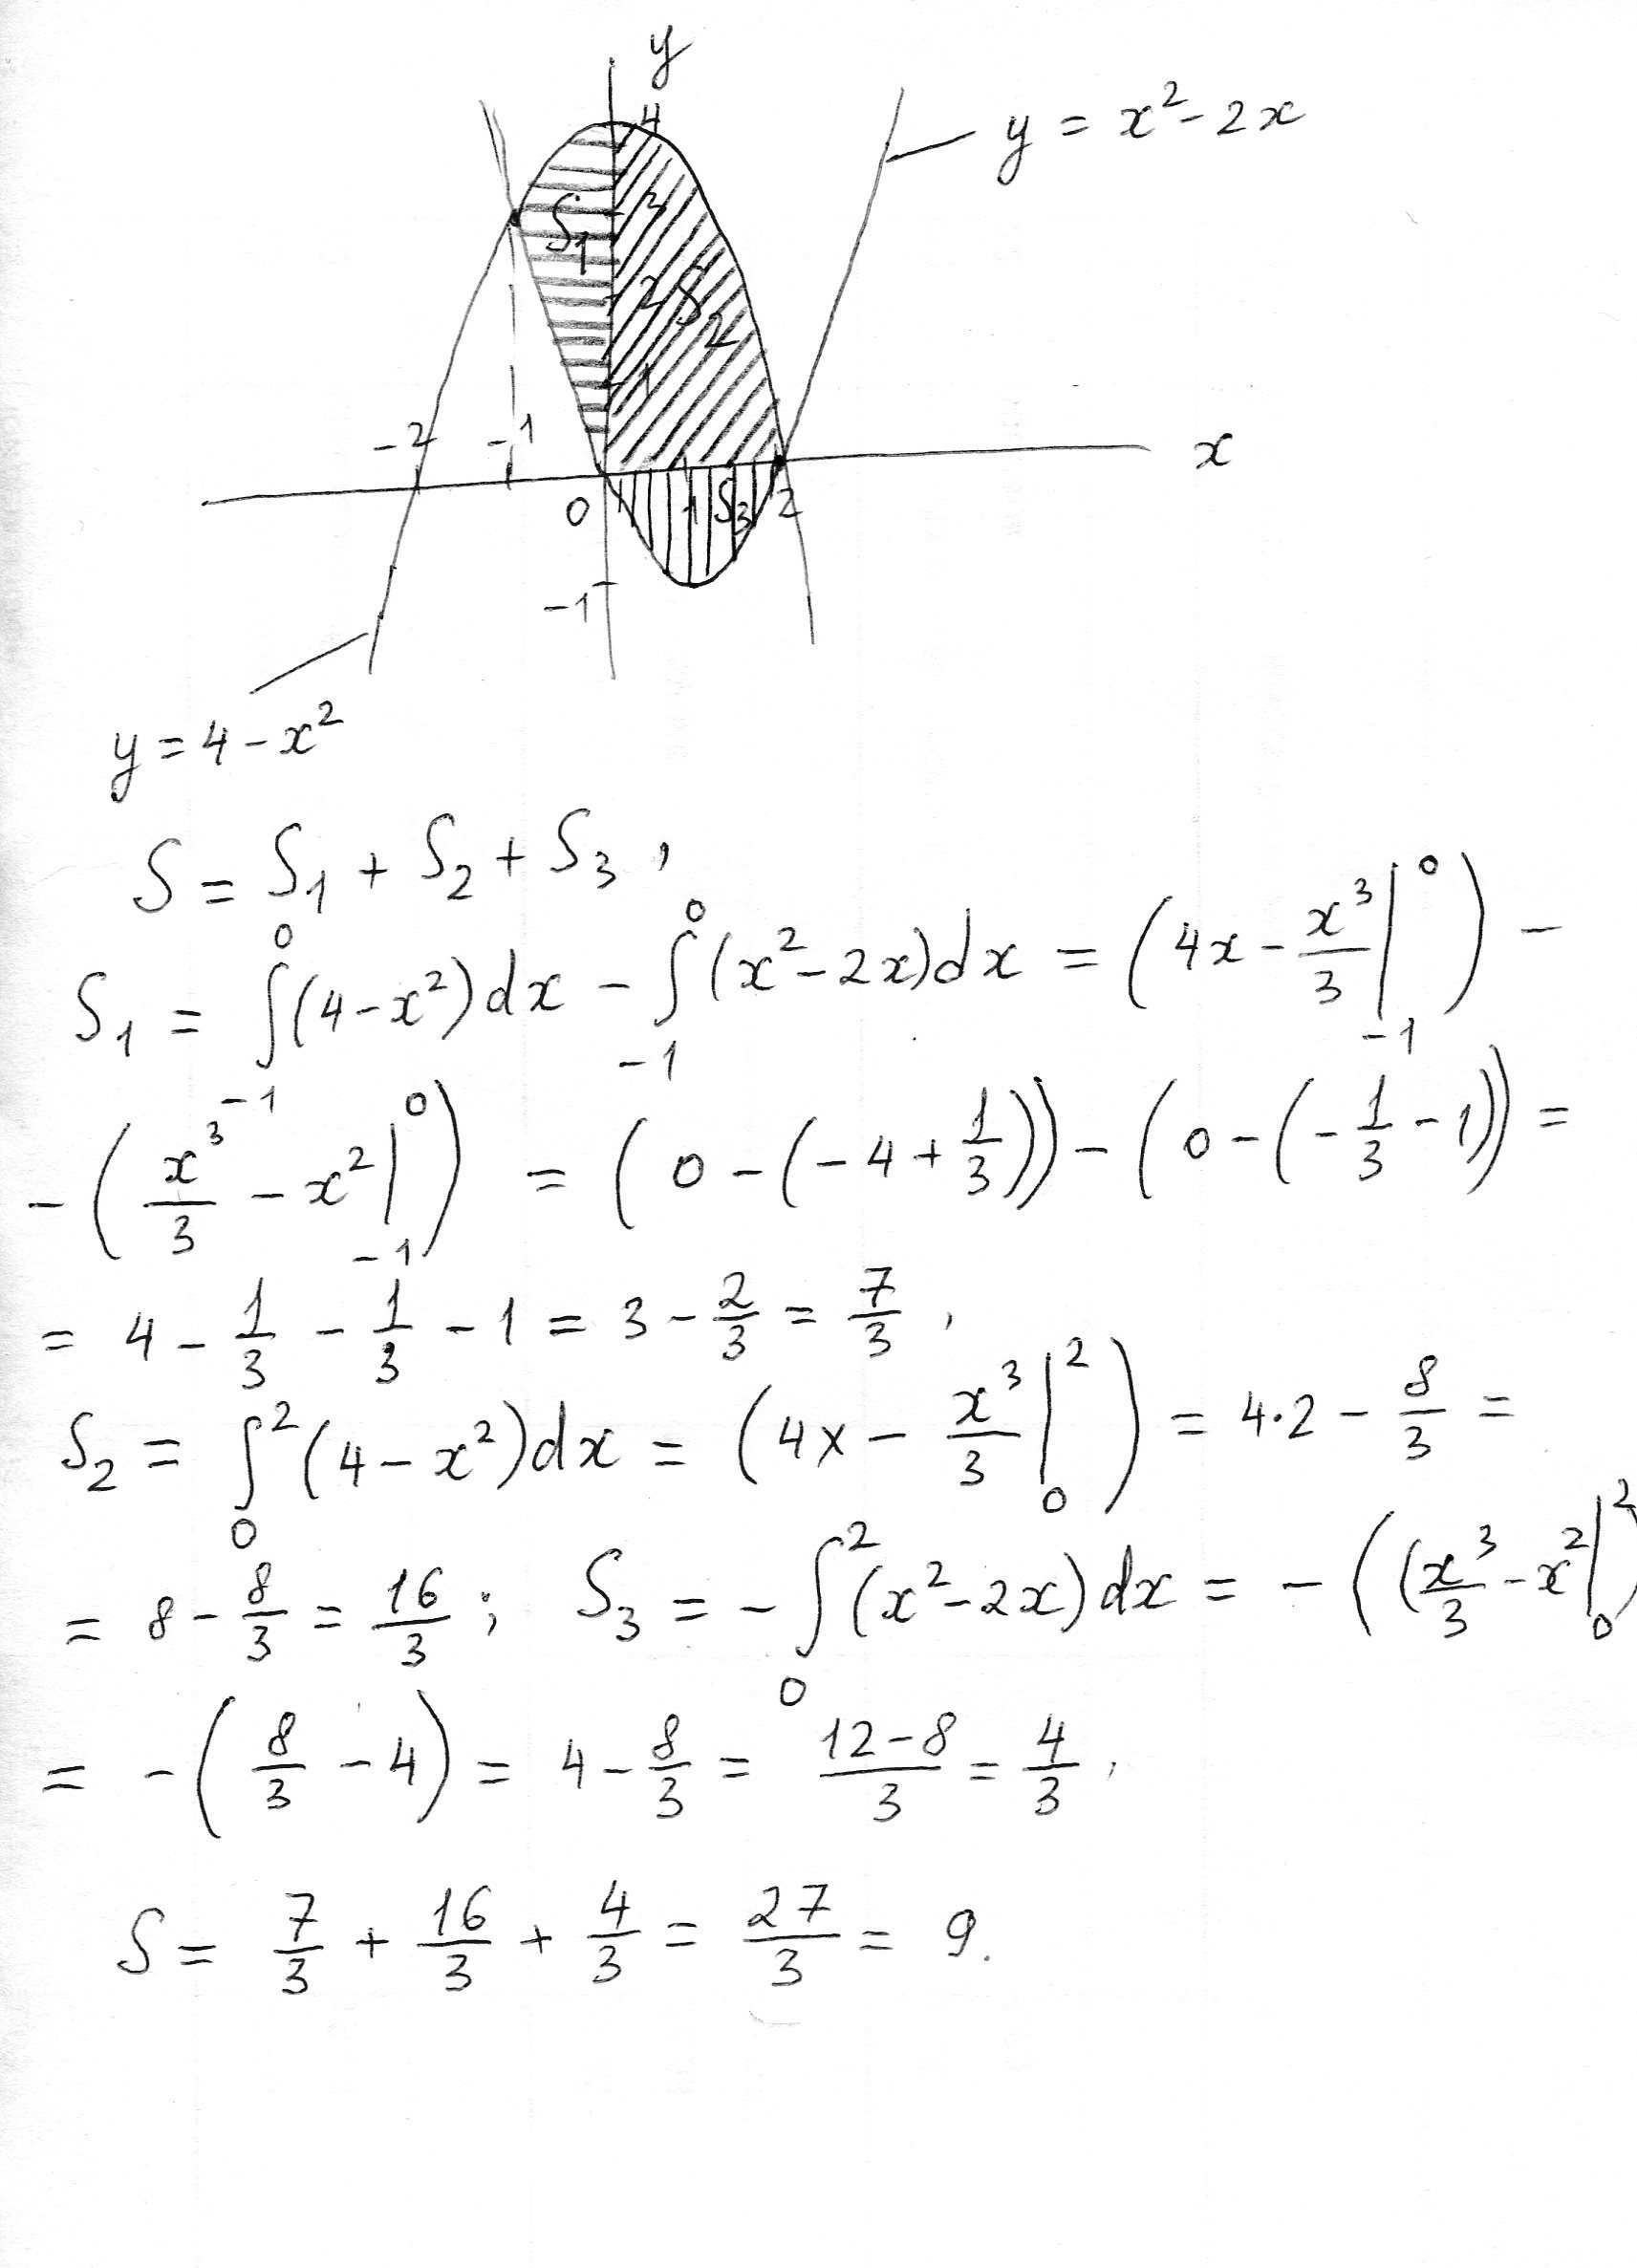 y
4
y = x² - 2x
3
S₁
2 S₂
1
-2 -1
x
0 1 S₃ 2
-1
y = 4 - x²
S = S₁ + S₂ + S₃ ,
S₁ = ∫₋₁⁰ (4 - x²) dx - ∫₋₁⁰ (x² - 2x) dx = (4x - x³/3 |₋₁⁰) -
- (x³/3 - x² |₋₁⁰) = (0 - (-4 + 1/3)) - (0 - (-1/3 - 1)) =
= 4 - 1/3 - 1/3 - 1 = 3 - 2/3 = 7/3 ,
S₂ = ∫₀² (4 - x²) dx = (4x - x³/3 |₀²) = 4·2 - 8/3 =
= 8 - 8/3 = 16/3 ; S₃ = - ∫₀² (x² - 2x) dx = - ((x³/3 - x² |₀²)
= - (8/3 - 4) = 4 - 8/3 = (12 - 8)/3 = 4/3 .
S = 7/3 + 16/3 + 4/3 = 27/3 = 9.